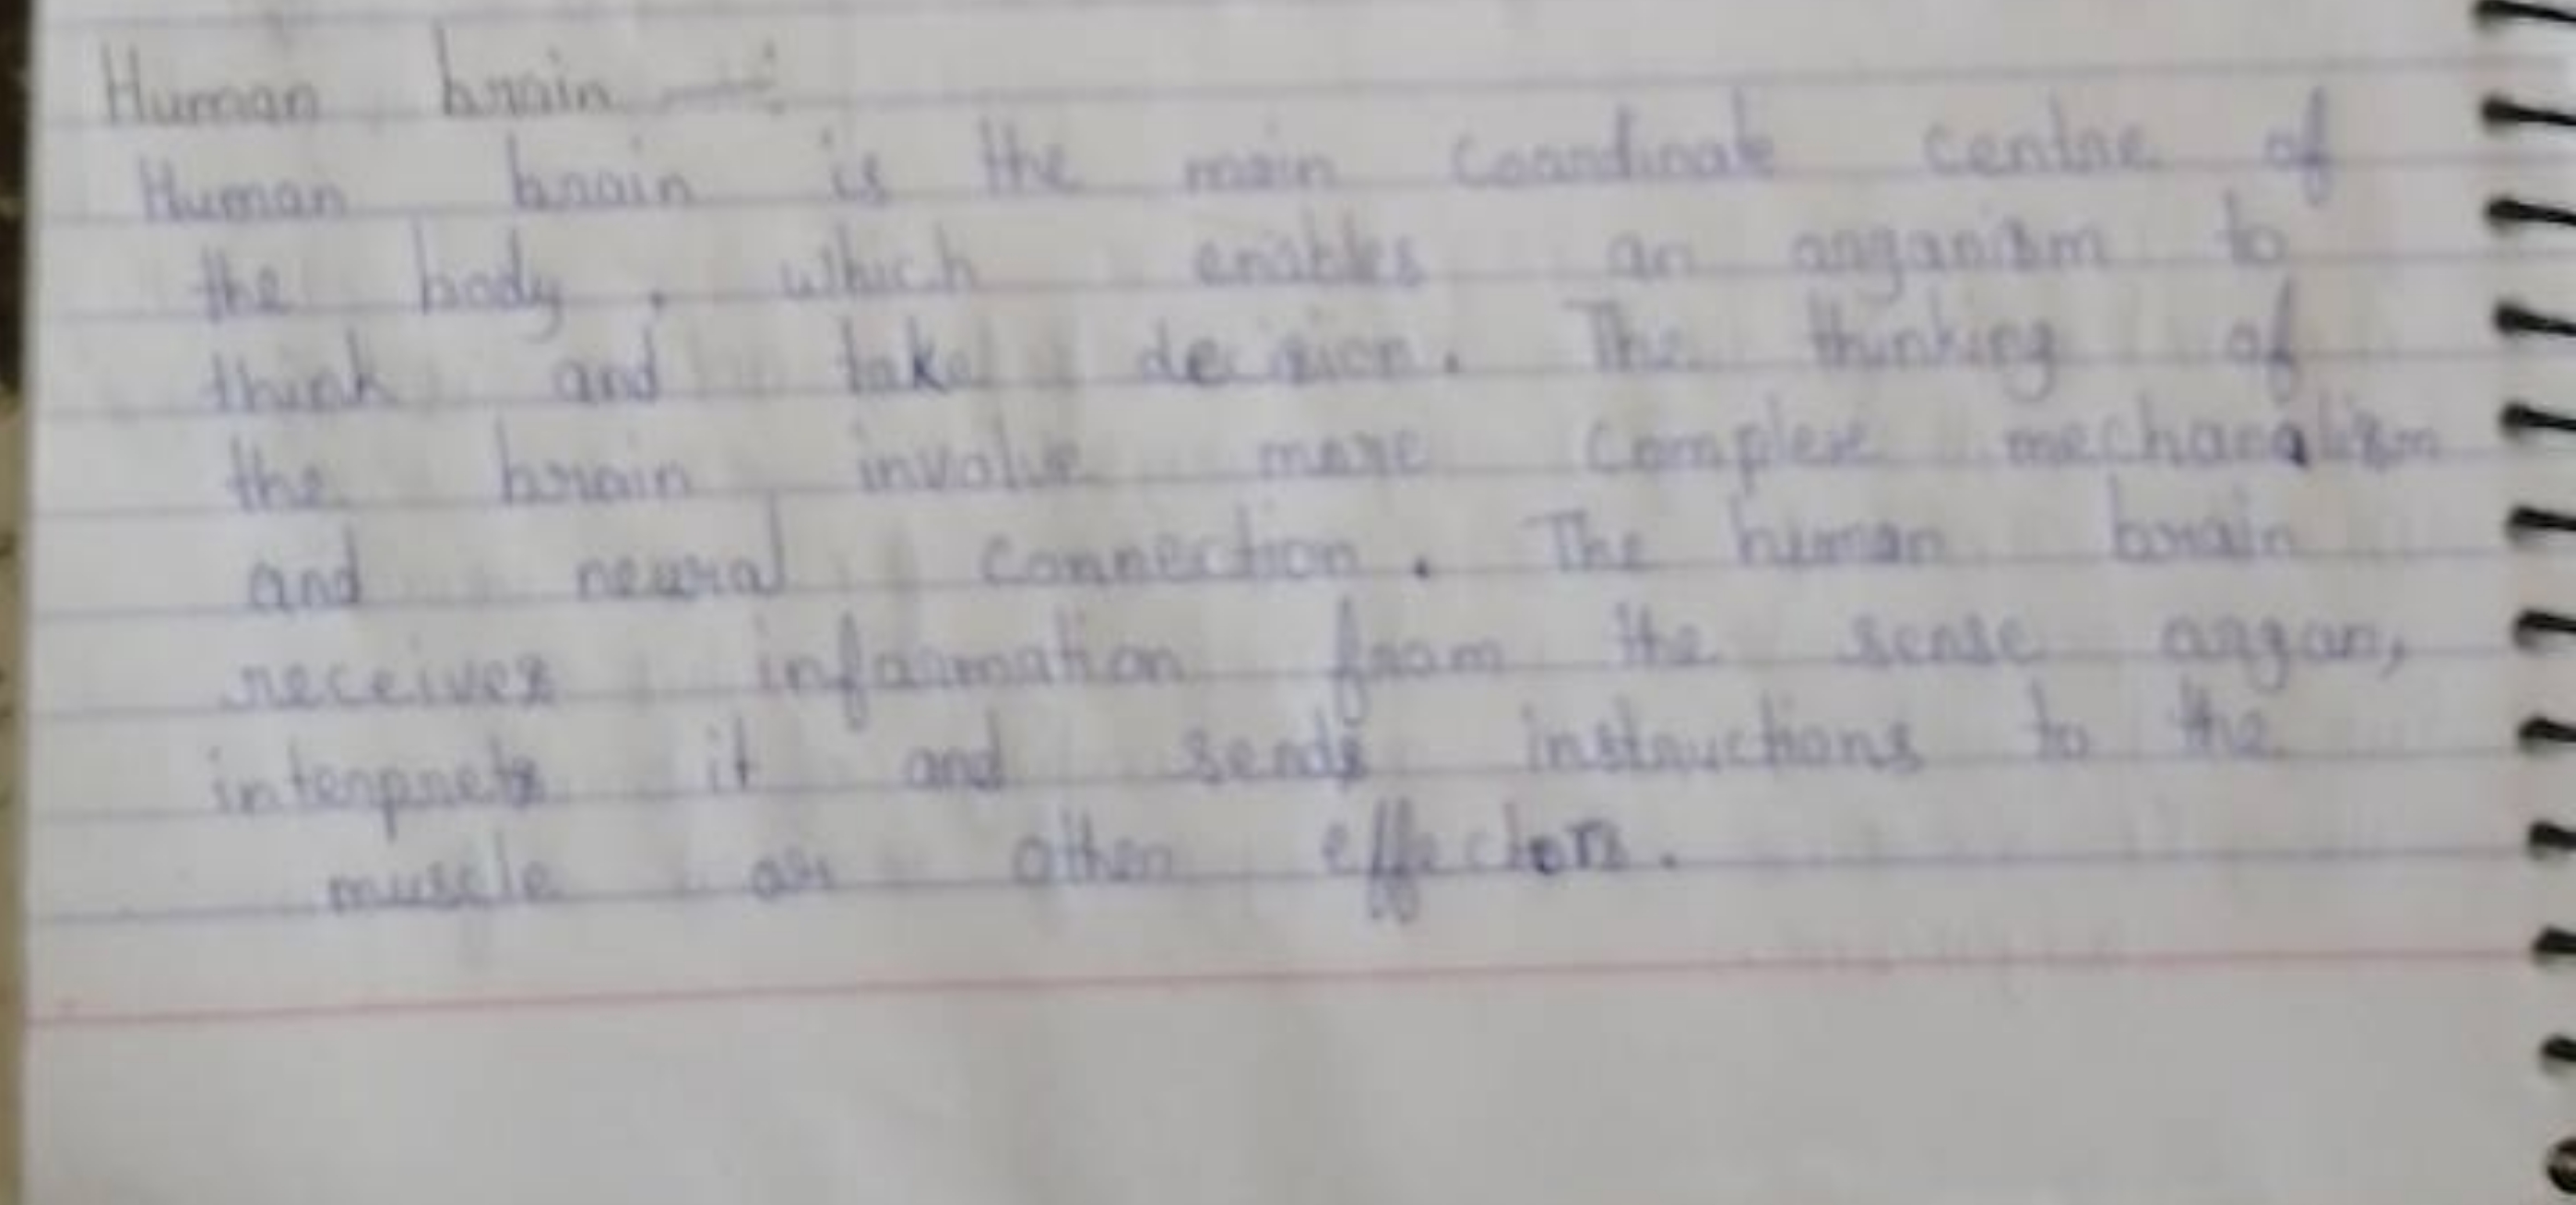 Human brain —:
Human brain is the main Coordinate centre of
the body, which enables an organism to
think and take decision. The thinking of
the brain involve more Complex mechanalism
and neural connection. The human brain
receives information from the sense organ,
interprets it and sends instructions to the
muscle or other effectors.